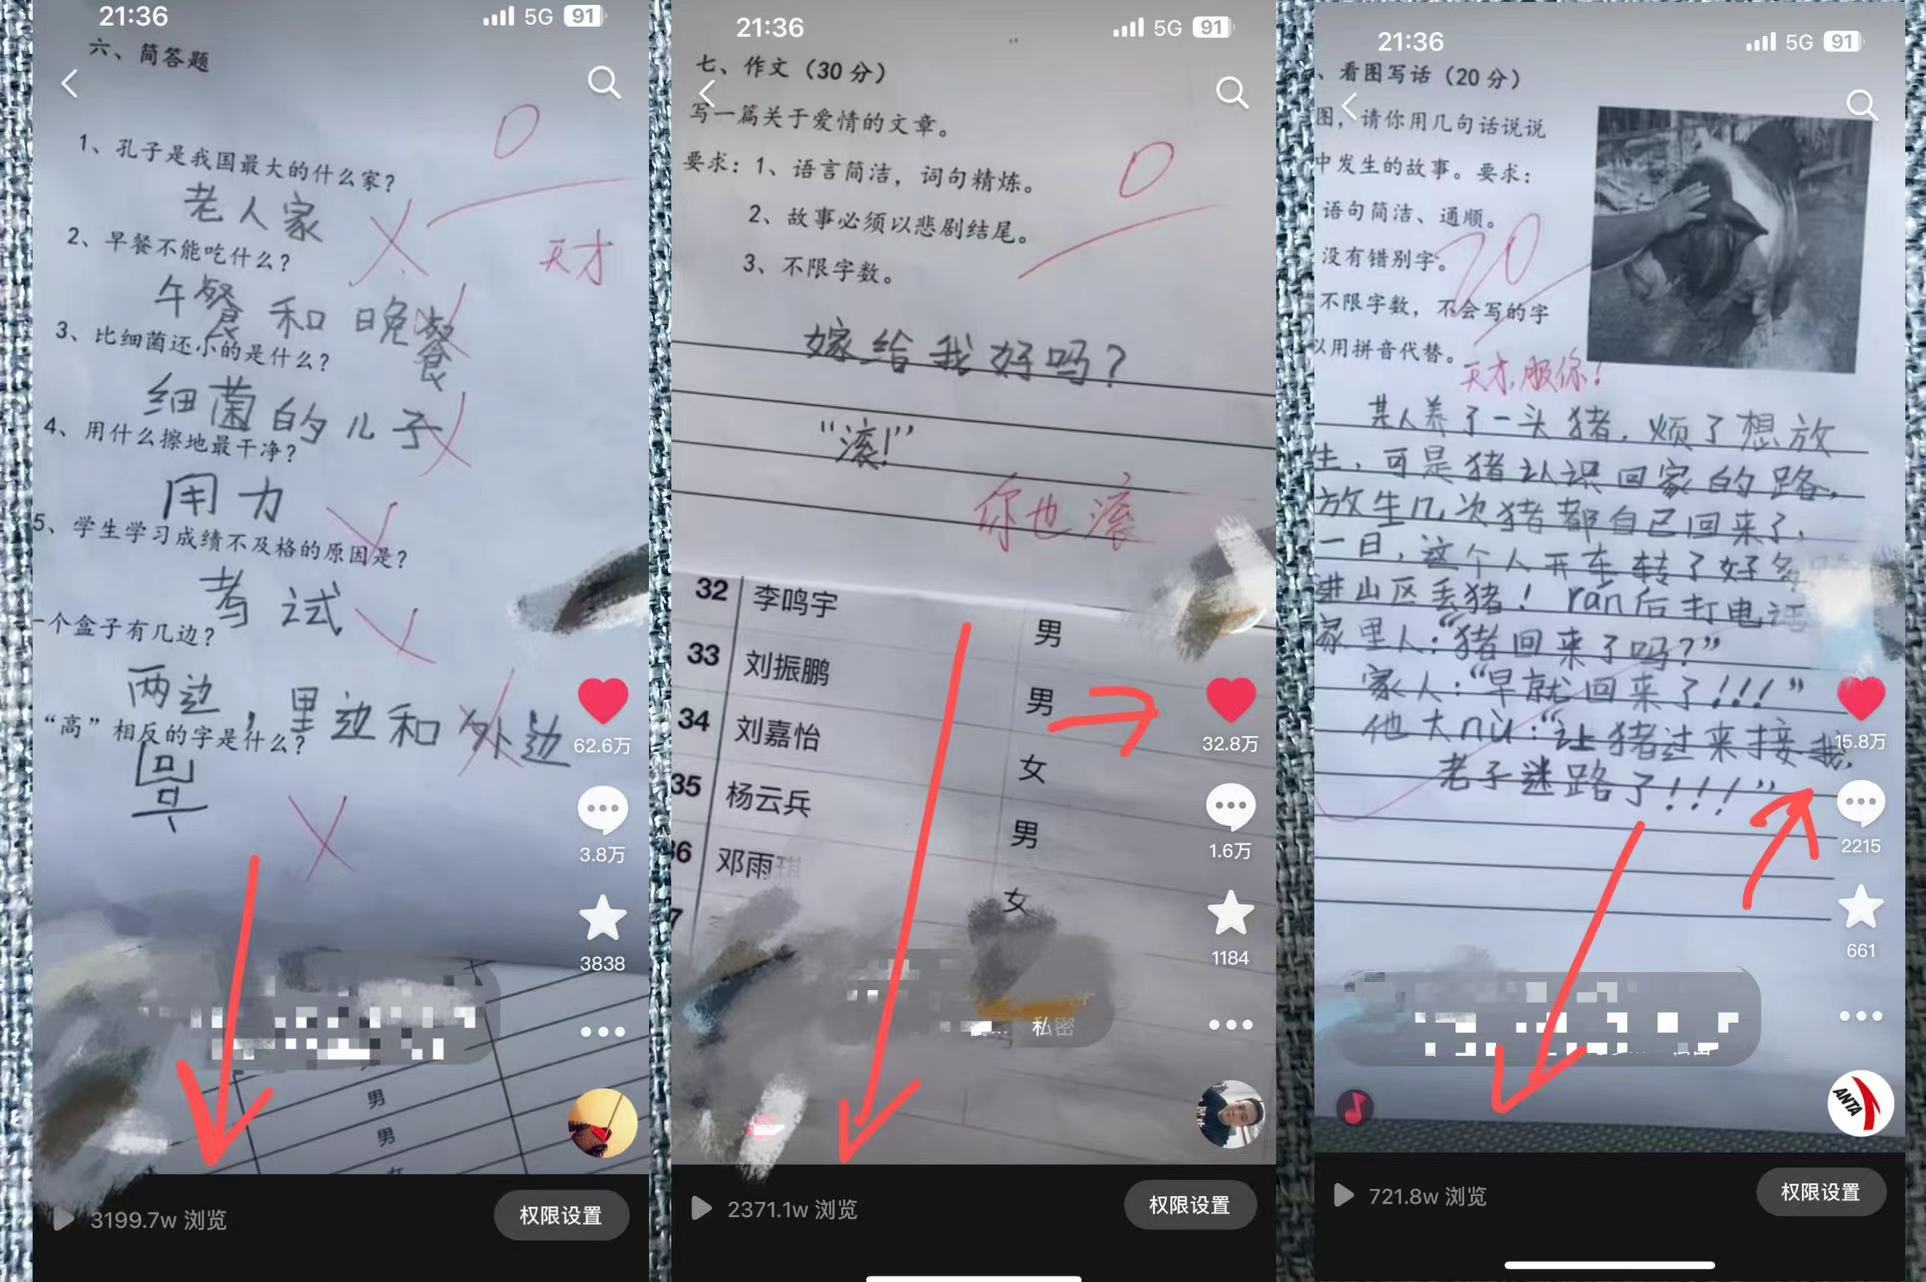 21:36
5G 91
六、简答题
0
1、孔子是我国最大的什么家?
老人家
天才
2、早餐不能吃什么?
午餐和晚餐
3、比细菌还小的是什么?
细菌的儿子
4、用什么擦地最干净?
用力
5、学生学习成绩不及格的原因是?
考试
一个盒子有几边?
两边，里边和外边
“高”相反的字是什么?
62.6万
3.8万
3838
男
男
女
3199.7w 浏览
权限设置
21:36
5G 91
七、作文（30分）
写一篇关于爱情的文章。
要求：1、语言简洁，词句精炼。
0
2、故事必须以悲剧结尾。
3、不限字数。
嫁给我好吗?
“滚!”
你也滚
32 李鸣宇 男
33 刘振鹏 男
34 刘嘉怡 女
35 杨云兵 男
36 邓雨琪 女
7
32.8万
1.6万
1184
私密
2371.1w 浏览
权限设置
21:36
5G 91
、看图写话（20分）
图，请你用几句话说说
中发生的故事。要求：
语句简洁、通顺。
没有错别字。
20
不限字数，不会写的字
以用拼音代替。
天才,服你!
某人养了一头猪，烦了想放
生，可是猪认识回家的路，
放生几次猪都自己回来了，
一日，这个人开车转了好多
进山区丢猪! rán后打电话
家里人：“猪回来了吗?”
家人：“早就回来了!!!”
他大nù：“让猪过来接我，
老子迷路了!!!”
15.8万
2215
661
ANTA
721.8w 浏览
权限设置